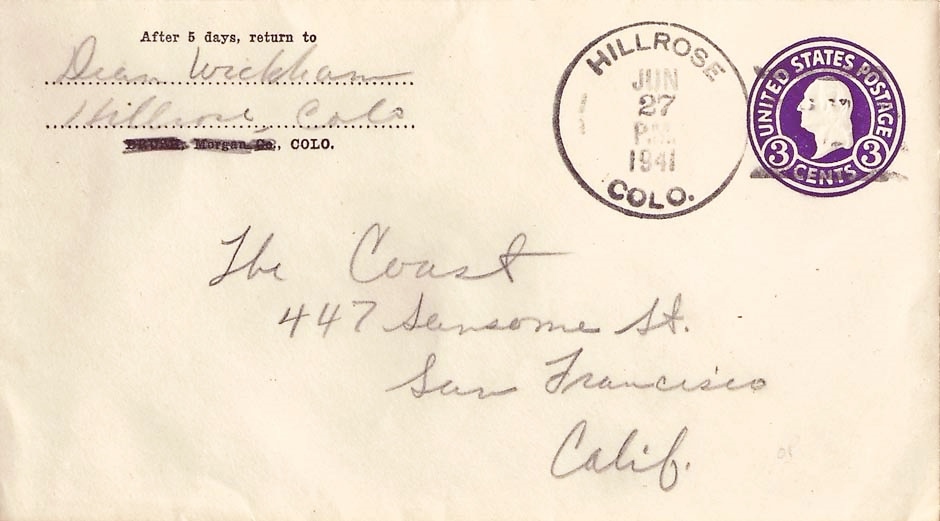 After 5 days, return to
Dean Wickham
Hillrose, Colo
Morgan Co., COLO.
HILLROSE
JUN
27
P.M.
1941
COLO.
UNITED STATES POSTAGE
3 CENTS 3
The Coast
447 Sansome St.
San Francisco
Calif.